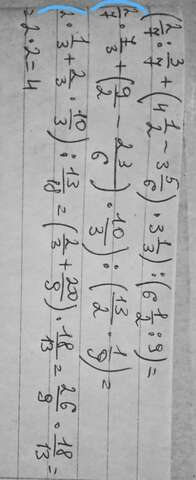 (2/7 : 3/7 + (4 1/2 - 3 5/6) · 3 1/3) : (6 1/2 : 9) =
(2/7 · 7/3 + (9/2 - 23/6) · 10/3) : (13/2 · 1/9) =
2 · 1/3 + 2/3 · 10/3) : 13/18 = (2/3 + 20/9) · 18/13 = 26/9 · 18/13 =
= 2 · 2 = 4